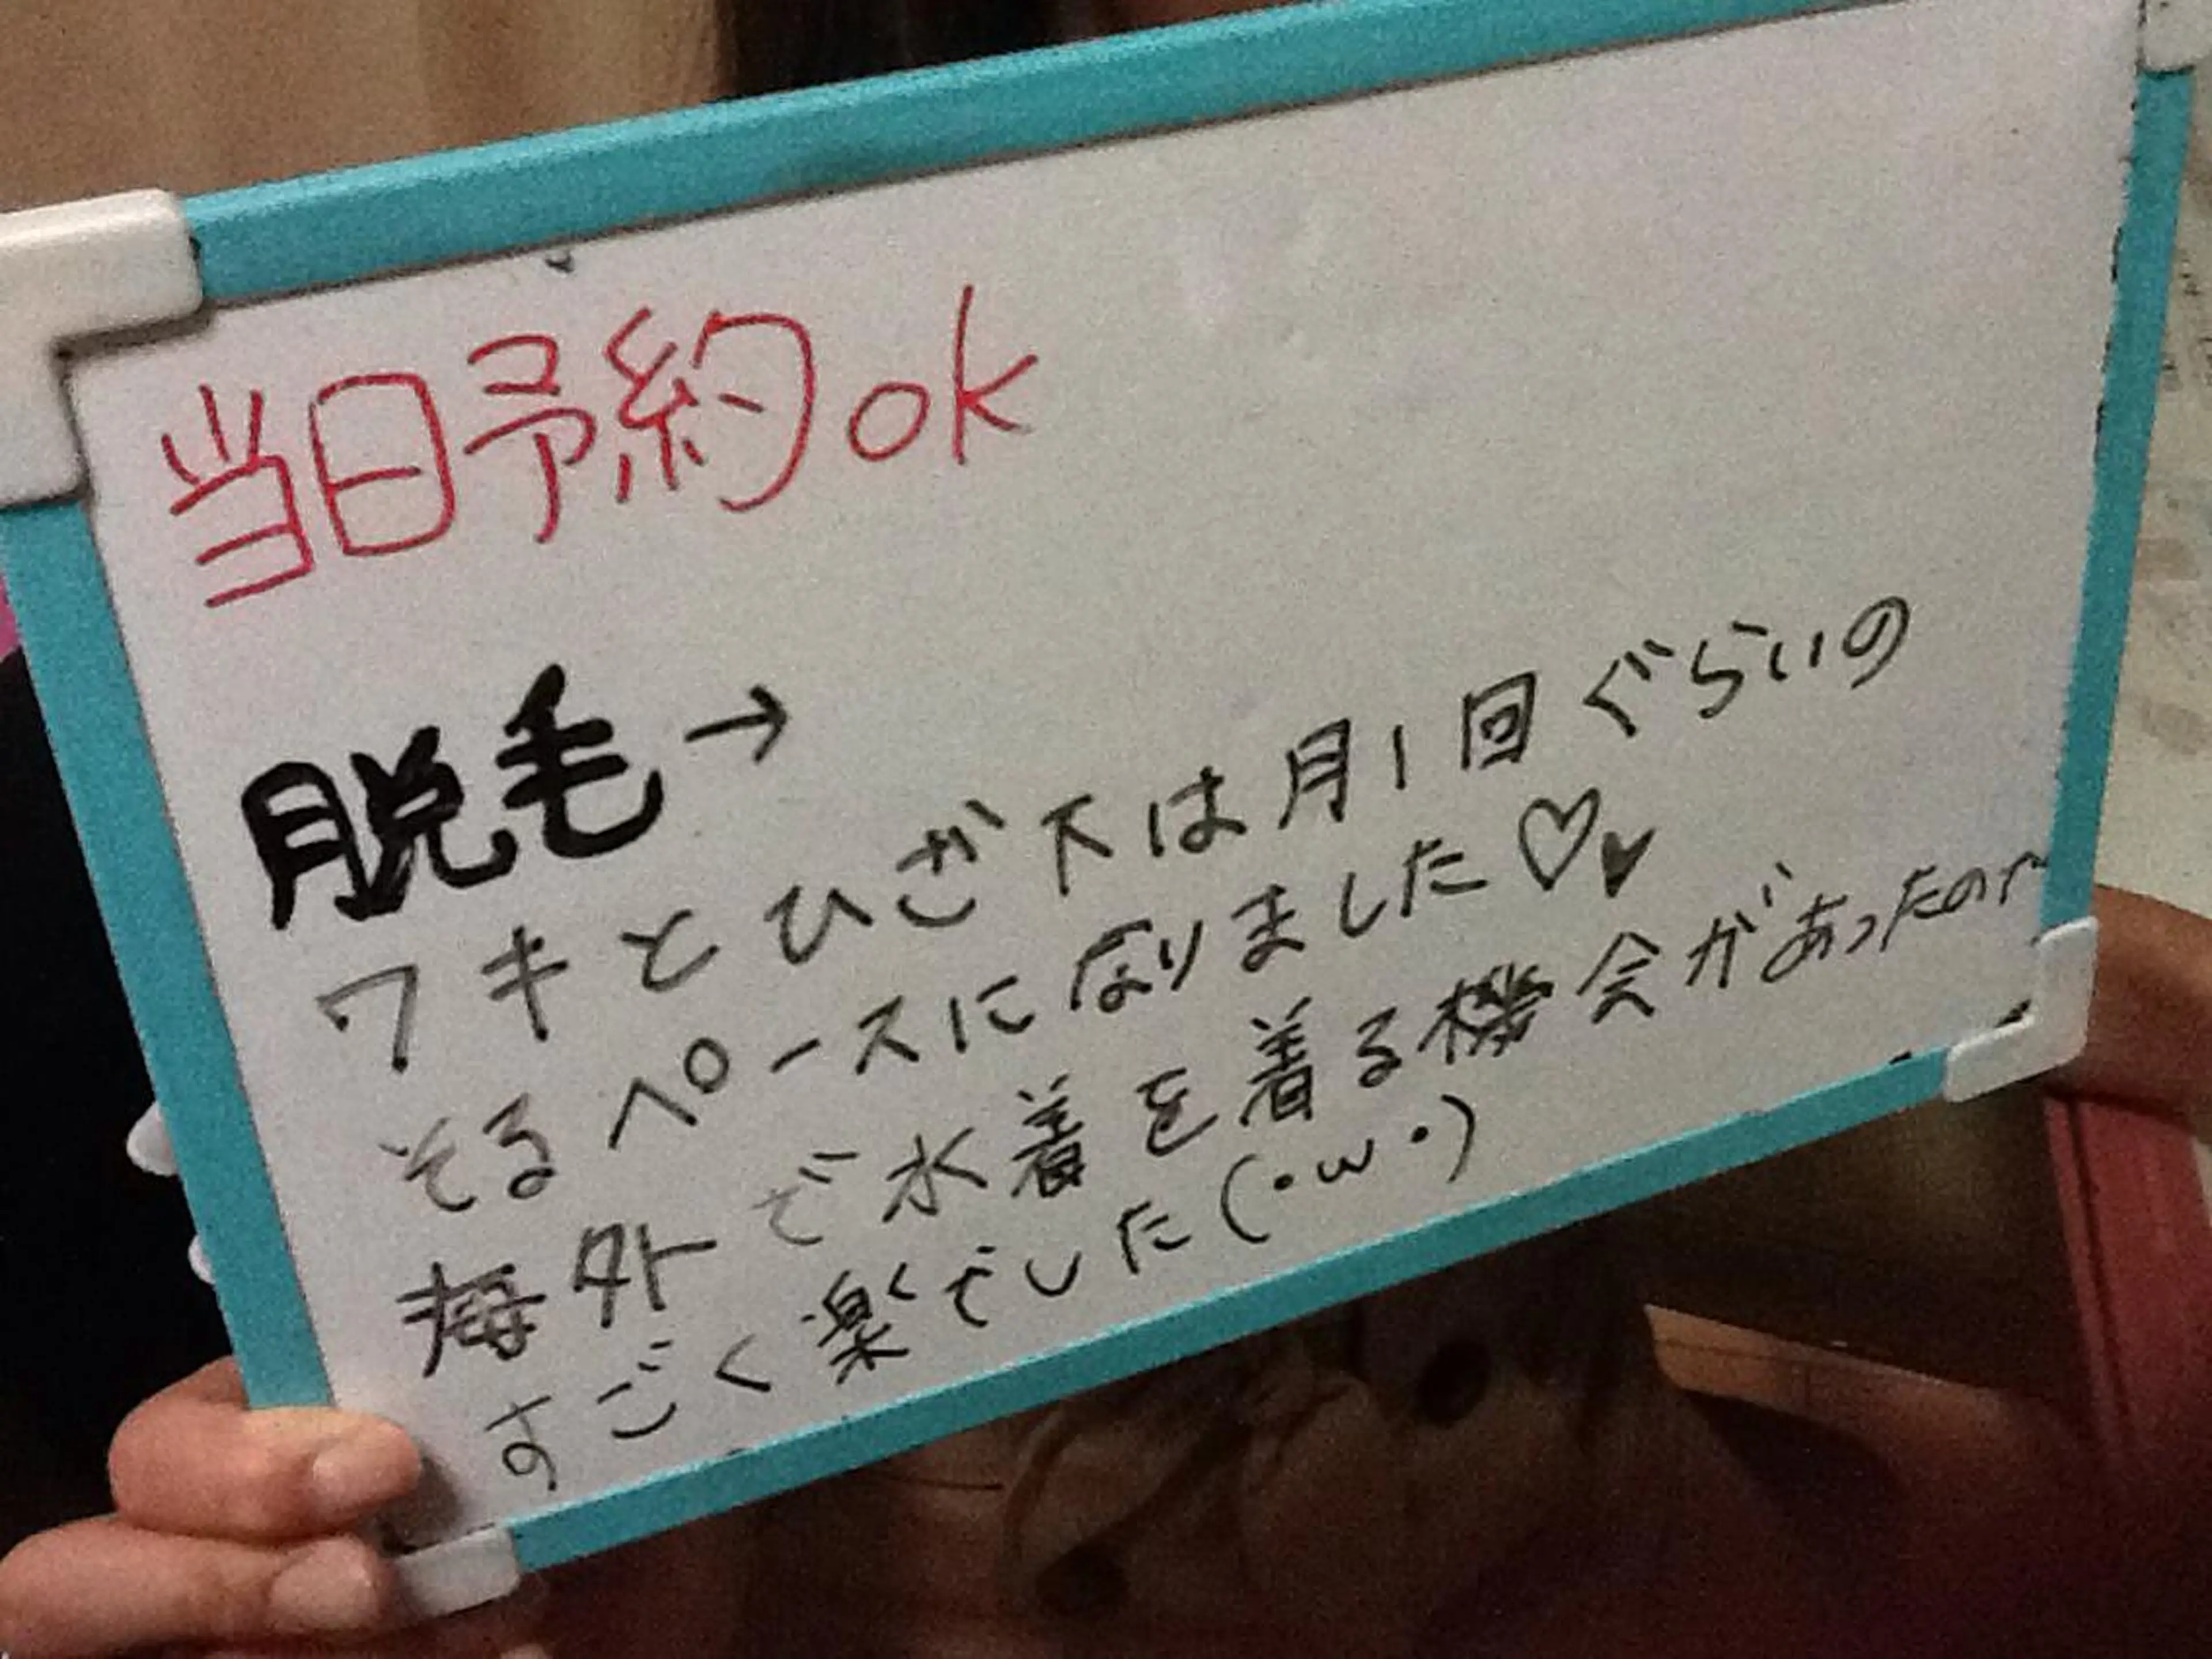 当日予約ok
脱毛→
ワキとひざ下は月1回ぐらいの
そるペースになりました♡♥
海外で水着を着る機会があったので
すごく楽でした(・ω・)